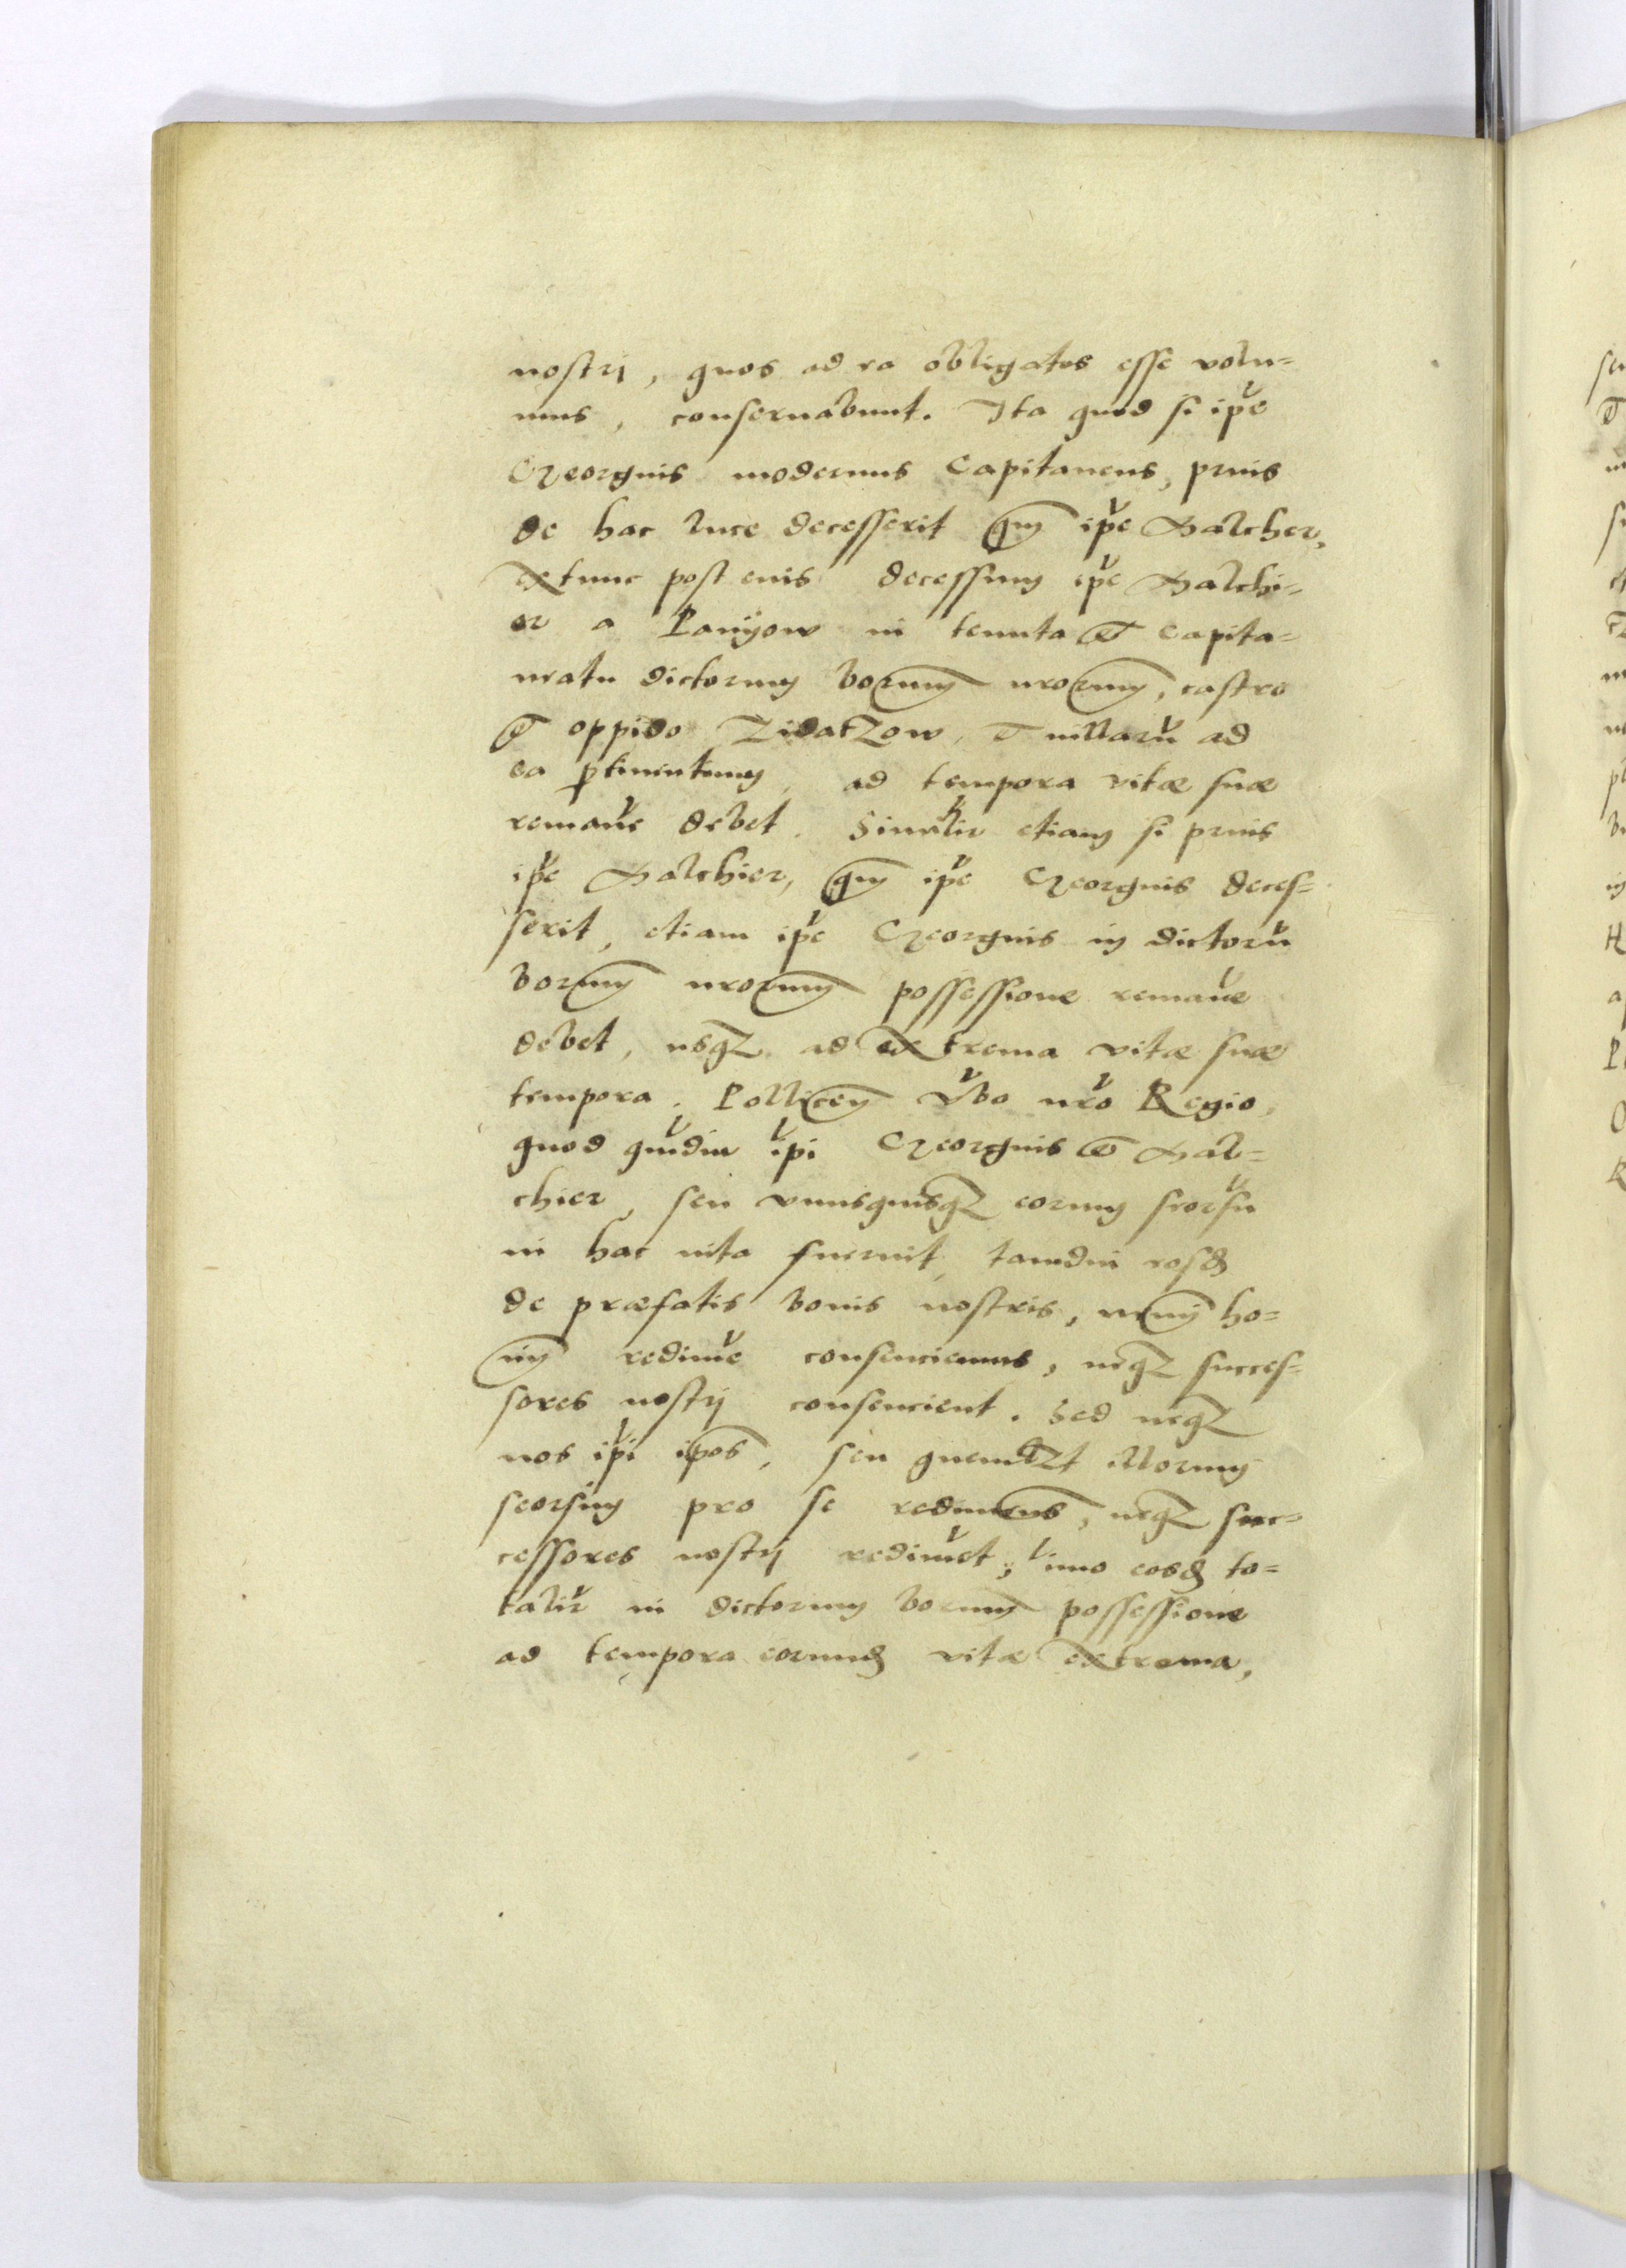 nostri, quos ad ea obligatos esse volu=
mus, conseruabunt. Ita quod si ip̃e
Georgius modernus Capitaneus, prius
de hac luce decesserit q̃m ip̃e Balcher,
extunc post eius decessum ip̃e Balchi=
er a Paniyow in tenuta et Capita=
neatu dictorum bonorũ nrorũ, castro
et oppido Zidatzow, et uillarũ ad
ea ꝑtinentium, ad tempora vitæ suæ
remanẽ debet. Similir̃ etiam si prius
ip̃e Balchier, q̃m ip̃e Georgius deces=
serit, etiam ip̃e Georgius in dictorũ
bonorũ nrorũ possessione remanẽ
debet, usqꝫ ad extrema vitæ suæ
tempora. Pollicem̃ ṽbo nr̃o Regio,
quod qũdiu ip̃i Georgius et Bal=
chier, seu vnusquisqꝫ eorum seorsũ
in hac uita fuerint, tamdiu eosd̃
de præfatis bonis nostris, nemĩ ho=
im̃ redimẽ consenciemus, neqꝫ succes=
sores nostri consencient. Sed neqꝫ
nos ip̃i ip̃os, seu quemlꝫt illorum
seorsum pro se redimems̃, neqꝫ suc=
cessores nostri redimẽt, imo eosd̃ to=
talir̃ in dictorum bonorũ possessione
ad tempora eorund̃ vitæ extrema,